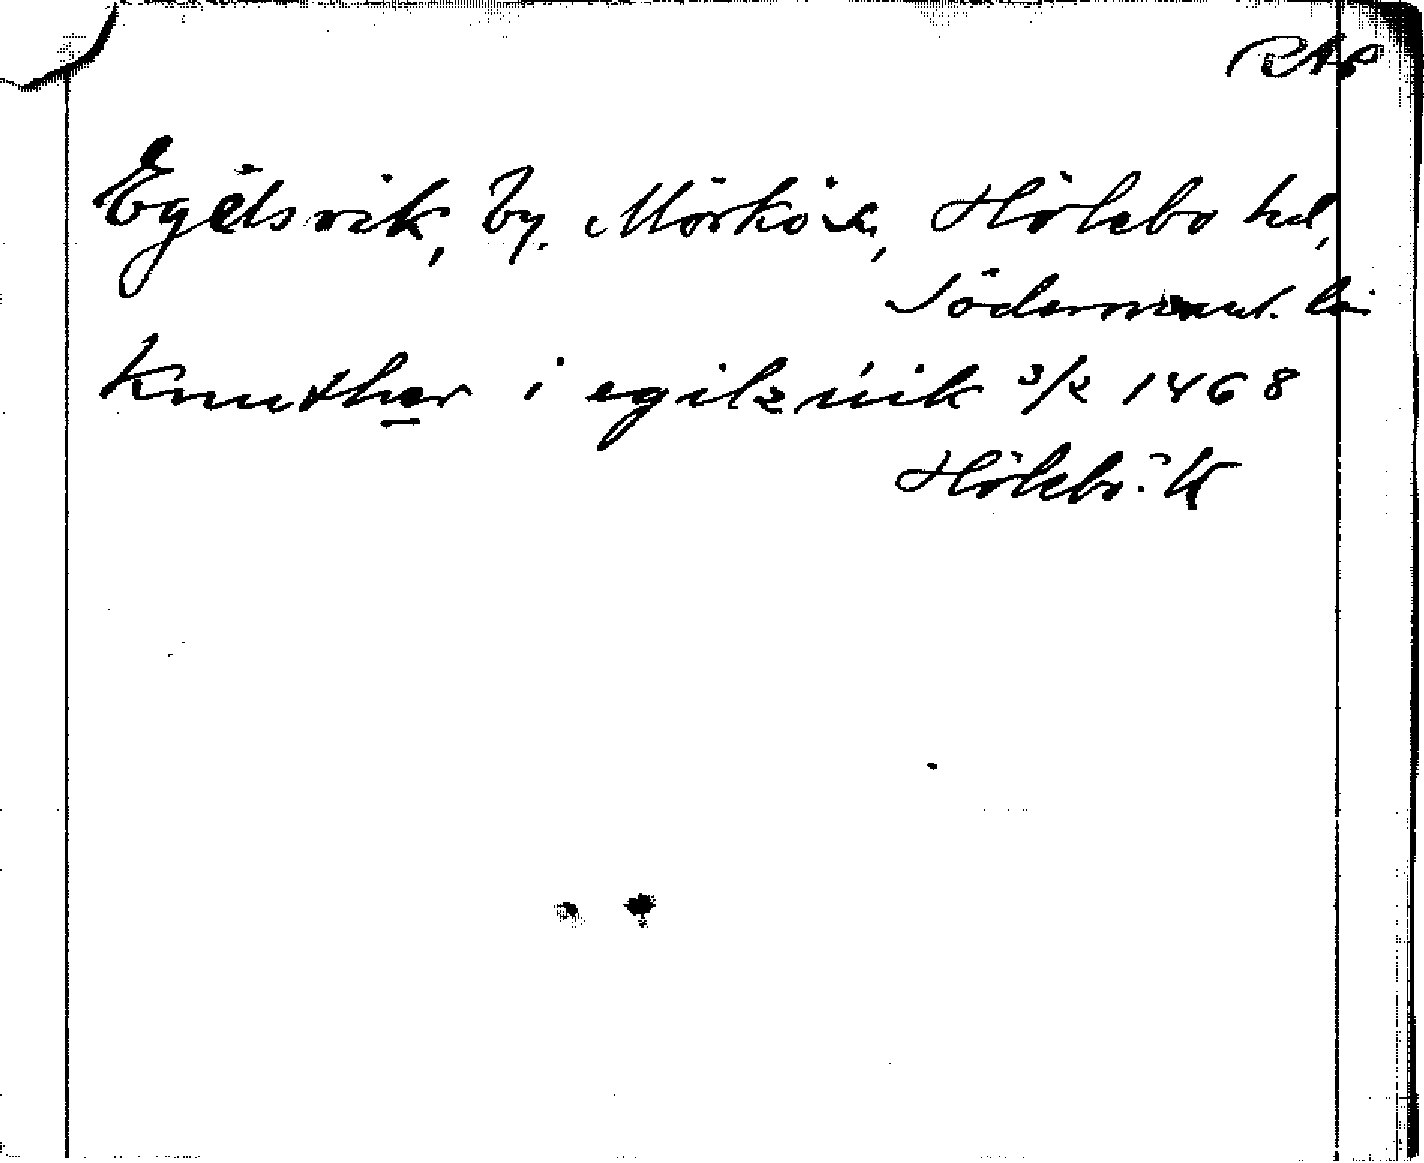 RAP
Egelsvik, by. Mörkö sn, Hölebo hd,
Södermanl. län
Knuther i egilzuik 3/2 1468
Hölebo.